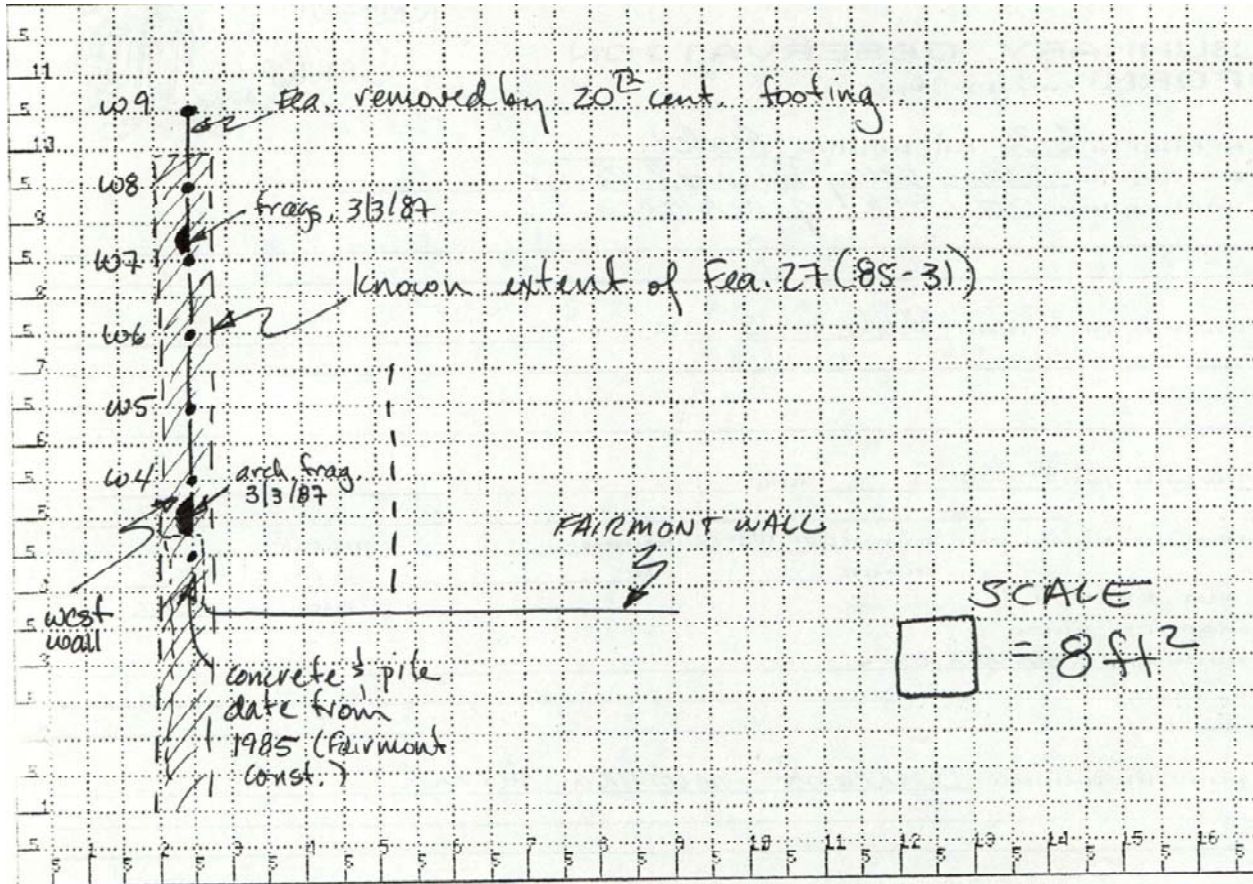 W9
Fea. removed by 20th cent. footing.
W8
frags. 3/3/87
W7
known extent of Fea. 27 (85-31)
W6
W5
W4
arch. frag.
3/3/87
FAIRMONT WALL
west
wall
SCALE
= 8 ft²
concrete & pile
date from
1985 (Fairmont
const.)
5
11
5
10
5
9
5
8
5
7
5
6
5
5
5
5
3
5
5
5 1 5 2 5 3 5 4 5 5 5 6 5 7 5 8 5 9 5 10 5 11 5 12 5 13 5 14 5 15 5 16 5